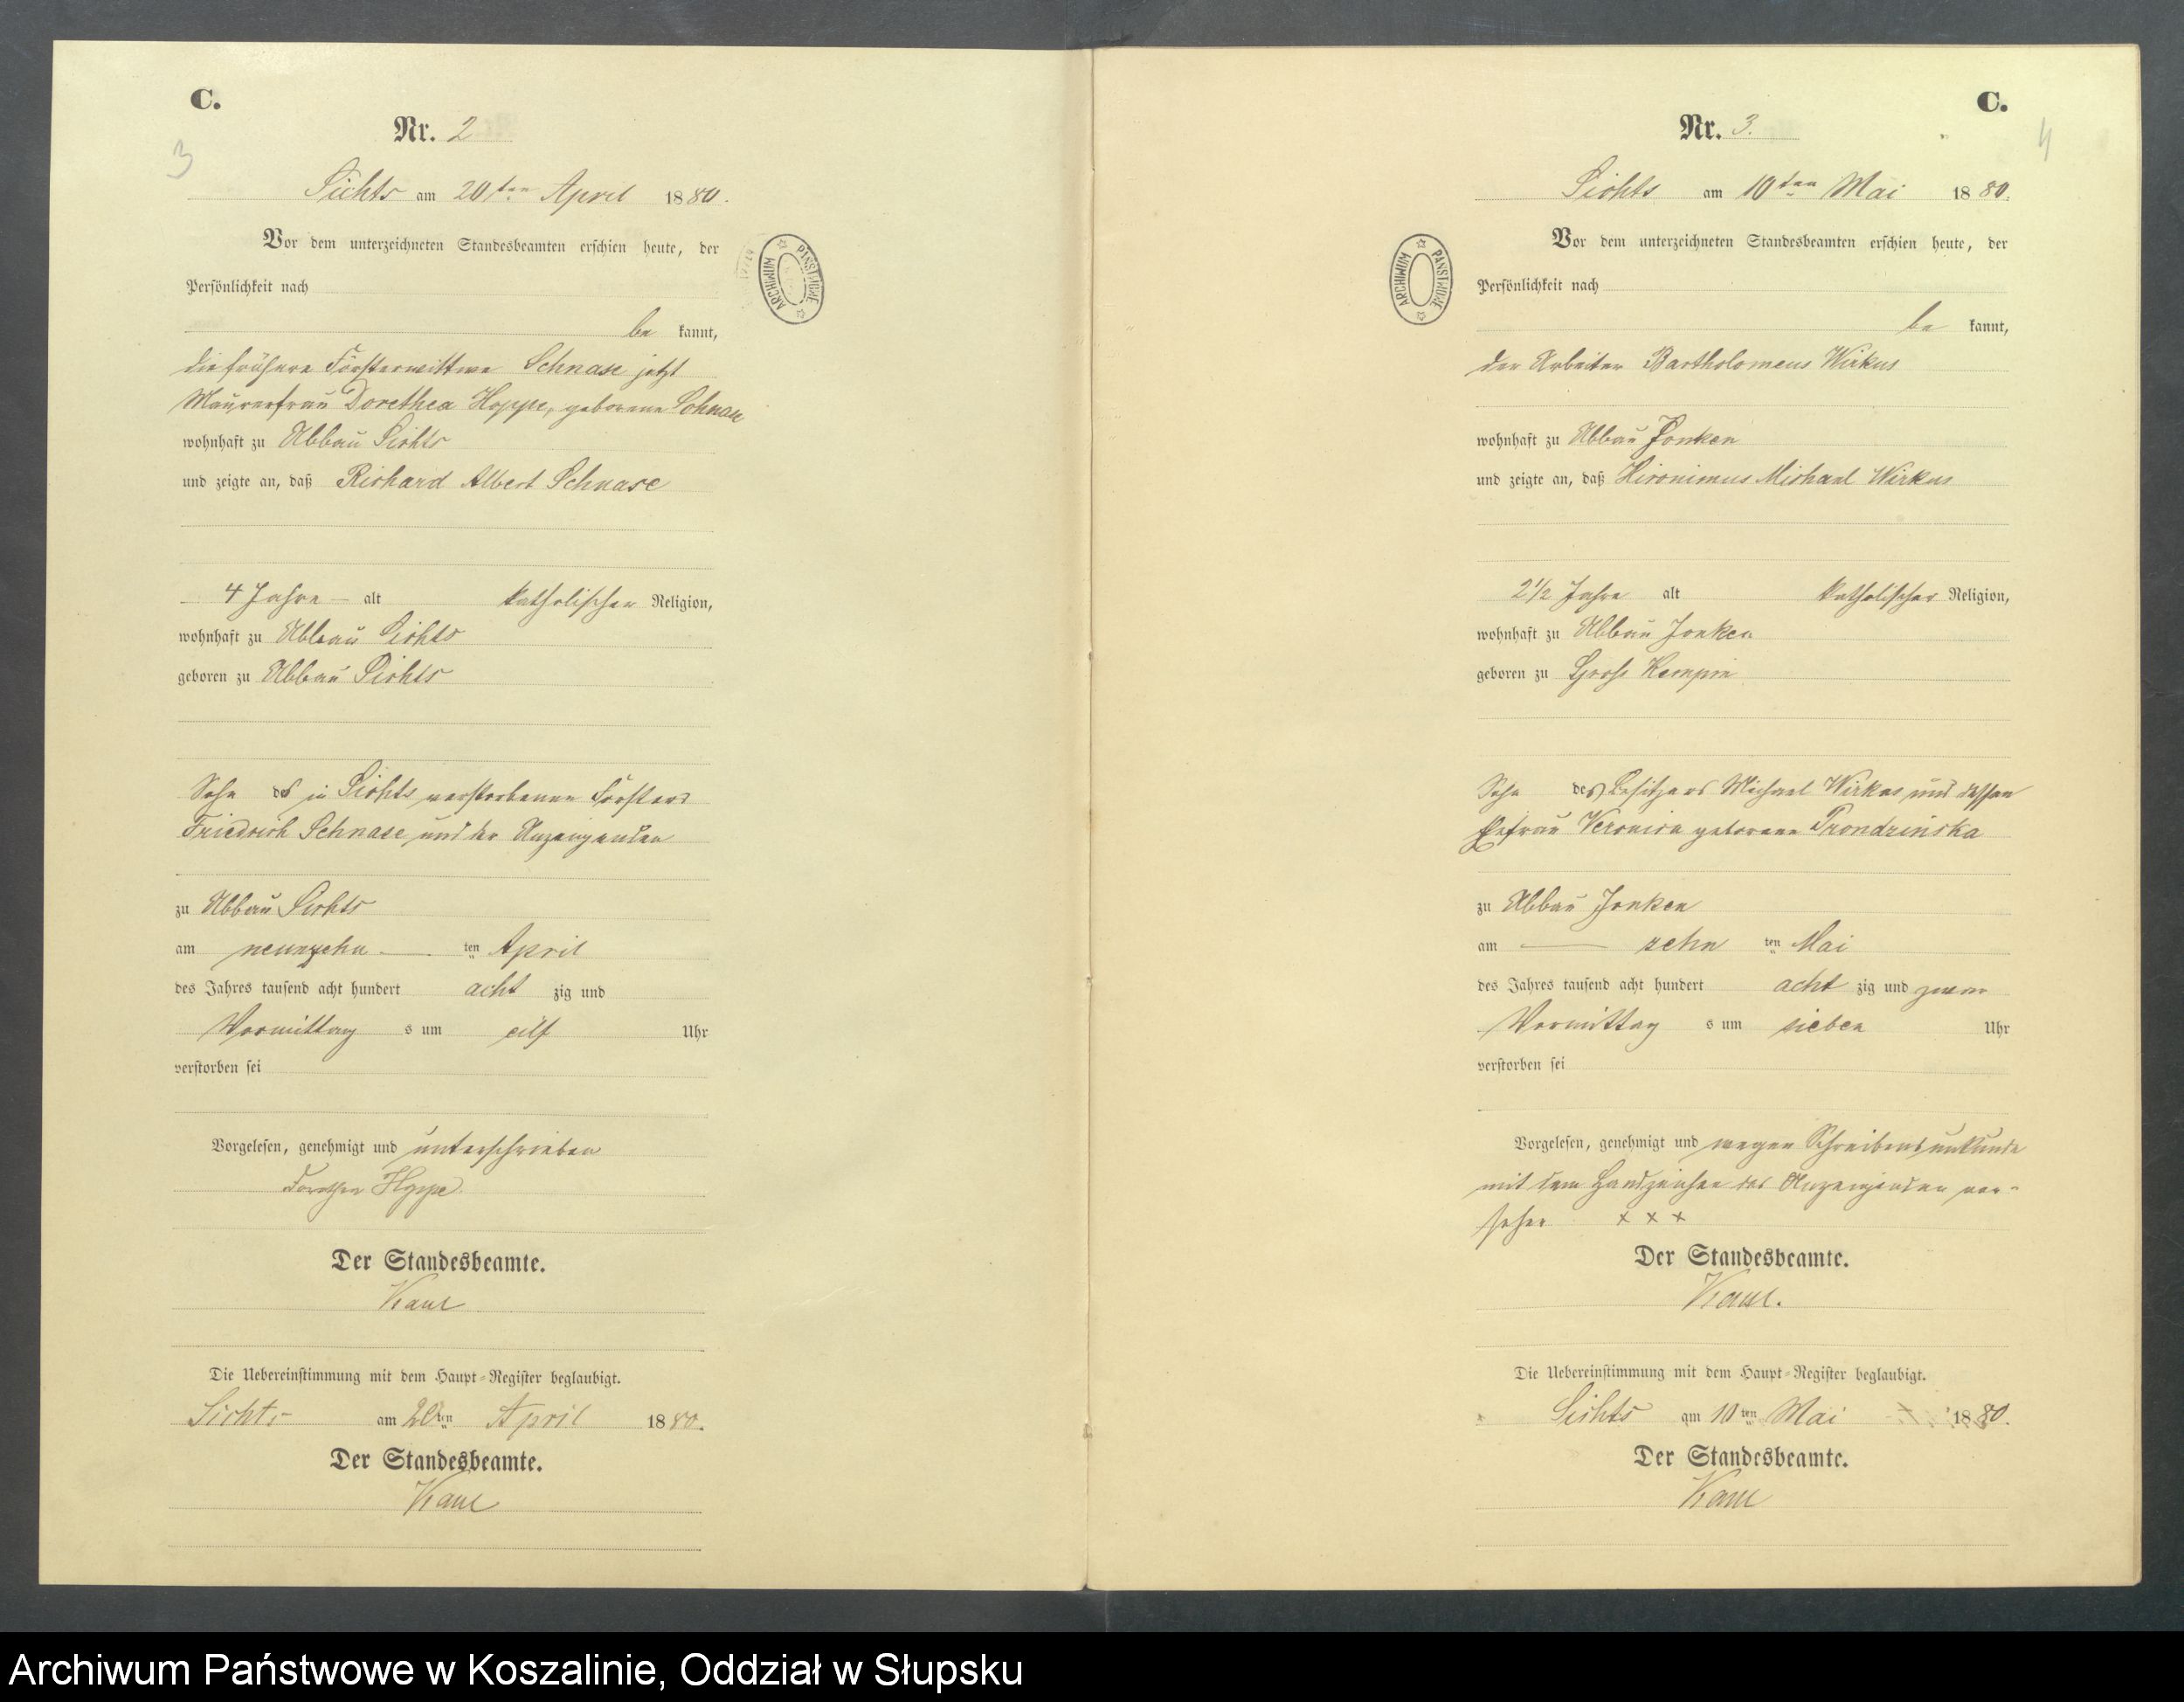 C.
3
Nr. 2
Sichts am 20ten April 1880.
Vor dem unterzeichneten Standesbeamten erschien heute, der
Persönlichkeit nach
be kannt,
die frühere Försterwittwe Schnase jetzt
Maurerfrau Dorethea Hoppe, geborene
wohnhaft zu Abbau Sichts
und zeigte an, daß Richard Albert Schnase
4 Jahre — alt katholischer Religion,
wohnhaft zu Abbau Sichts
geboren zu Abbau Sichts
Sohn des in Sichts verstorbenen Försters
Friedrich Schnase und der Anzeigenden
zu Abbau Sichts
am neunzehn — ten April
des Jahres tausend acht hundert acht zig und
Vormittag s um eilf Uhr
verstorben sei
Vorgelesen, genehmigt und unterschrieben
Dorothea Hoppe
Der Standesbeamte.
Kaul
Die Uebereinstimmung mit dem Haupt-Register beglaubigt.
Sichts am 20ten April 1880.
Der Standesbeamte.
Kaul
ARCHIWUM PAŃSTWOWE
C.
4
Nr. 3.
Sichts am 10ten Mai 1880.
Vor dem unterzeichneten Standesbeamten erschien heute, der
Persönlichkeit nach
be kannt,
der Arbeiter Bartholomeus Wirkus
wohnhaft zu Abbau Jonken
und zeigte an, daß Hironimus Michael Wirkus
2½ Jahre alt katholischer Religion,
wohnhaft zu Abbau Jonken
geboren zu Gross
Sohn des Besitzers Michael Wirkus und dessen
Ehefrau Veronica geborene
zu Abbau Jonken
am — zehn ten Mai
des Jahres tausend acht hundert acht zig und
Vormittag s um sieben Uhr
verstorben sei
Vorgelesen, genehmigt und wegen Schreibensunkunde
mit dem Handzeichen des Anzeigenden ver-
sehen x x x
Der Standesbeamte.
Kaul.
Die Uebereinstimmung mit dem Haupt-Register beglaubigt.
Sichts am 10ten Mai 1880.
Der Standesbeamte.
Kaul
ARCHIWUM PAŃSTWOWE
Archiwum Państwowe w Koszalinie, Oddział w Słupsku